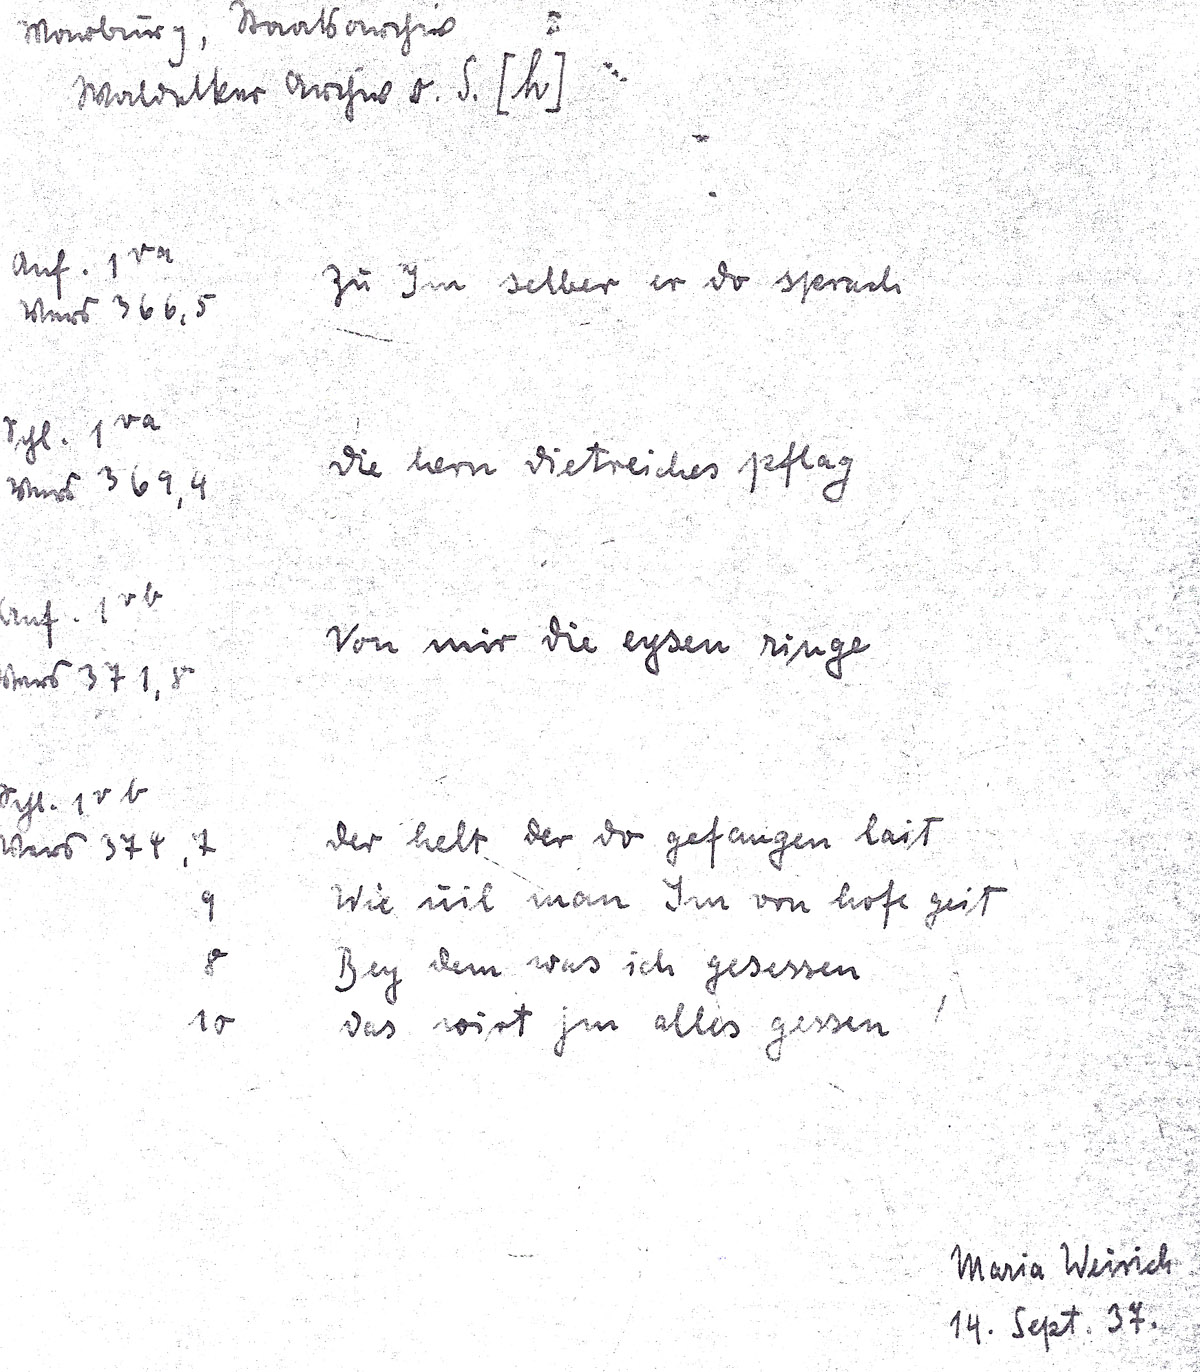 Marburg, Staatsarchiv
Waldecker Archiv o. S. [h]
Anf. 1 va
Vers 366,5 Zu Im selber er do sprach
Schl. 1 va
Vers 369,4 die hern dietreiches pflag
Anf. 1 vb
Vers 371,8 Von mir die eysen ringe
Schl. 1 vb
Vers 374,7 der helt der do gefangen lait
9 Wie uil man Im von hofe geit
8 Bey dem was ich gesessen
10 das wirt jm alles gessen
Maria Weirich
14. Sept. 37.